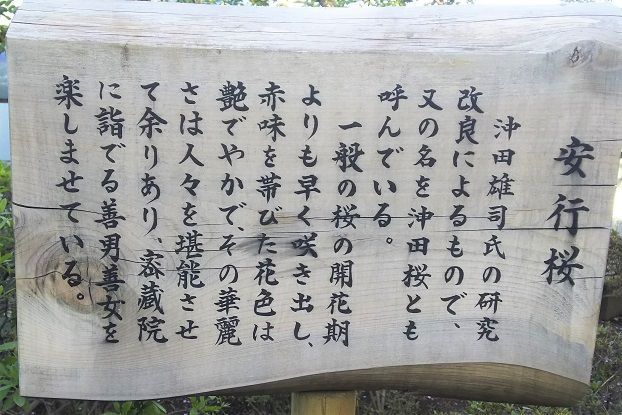 安行桜
沖田雄司氏の研究
改良によるもので、
又の名を沖田桜とも
呼んでいる。
一般の桜の開花期
よりも早く咲き出し、
赤味を帯びた花色は
艶でやかで、その華麗
さは人々を堪能させ
て余りあり、密蔵院
に詣でる善男善女を
楽しませている。